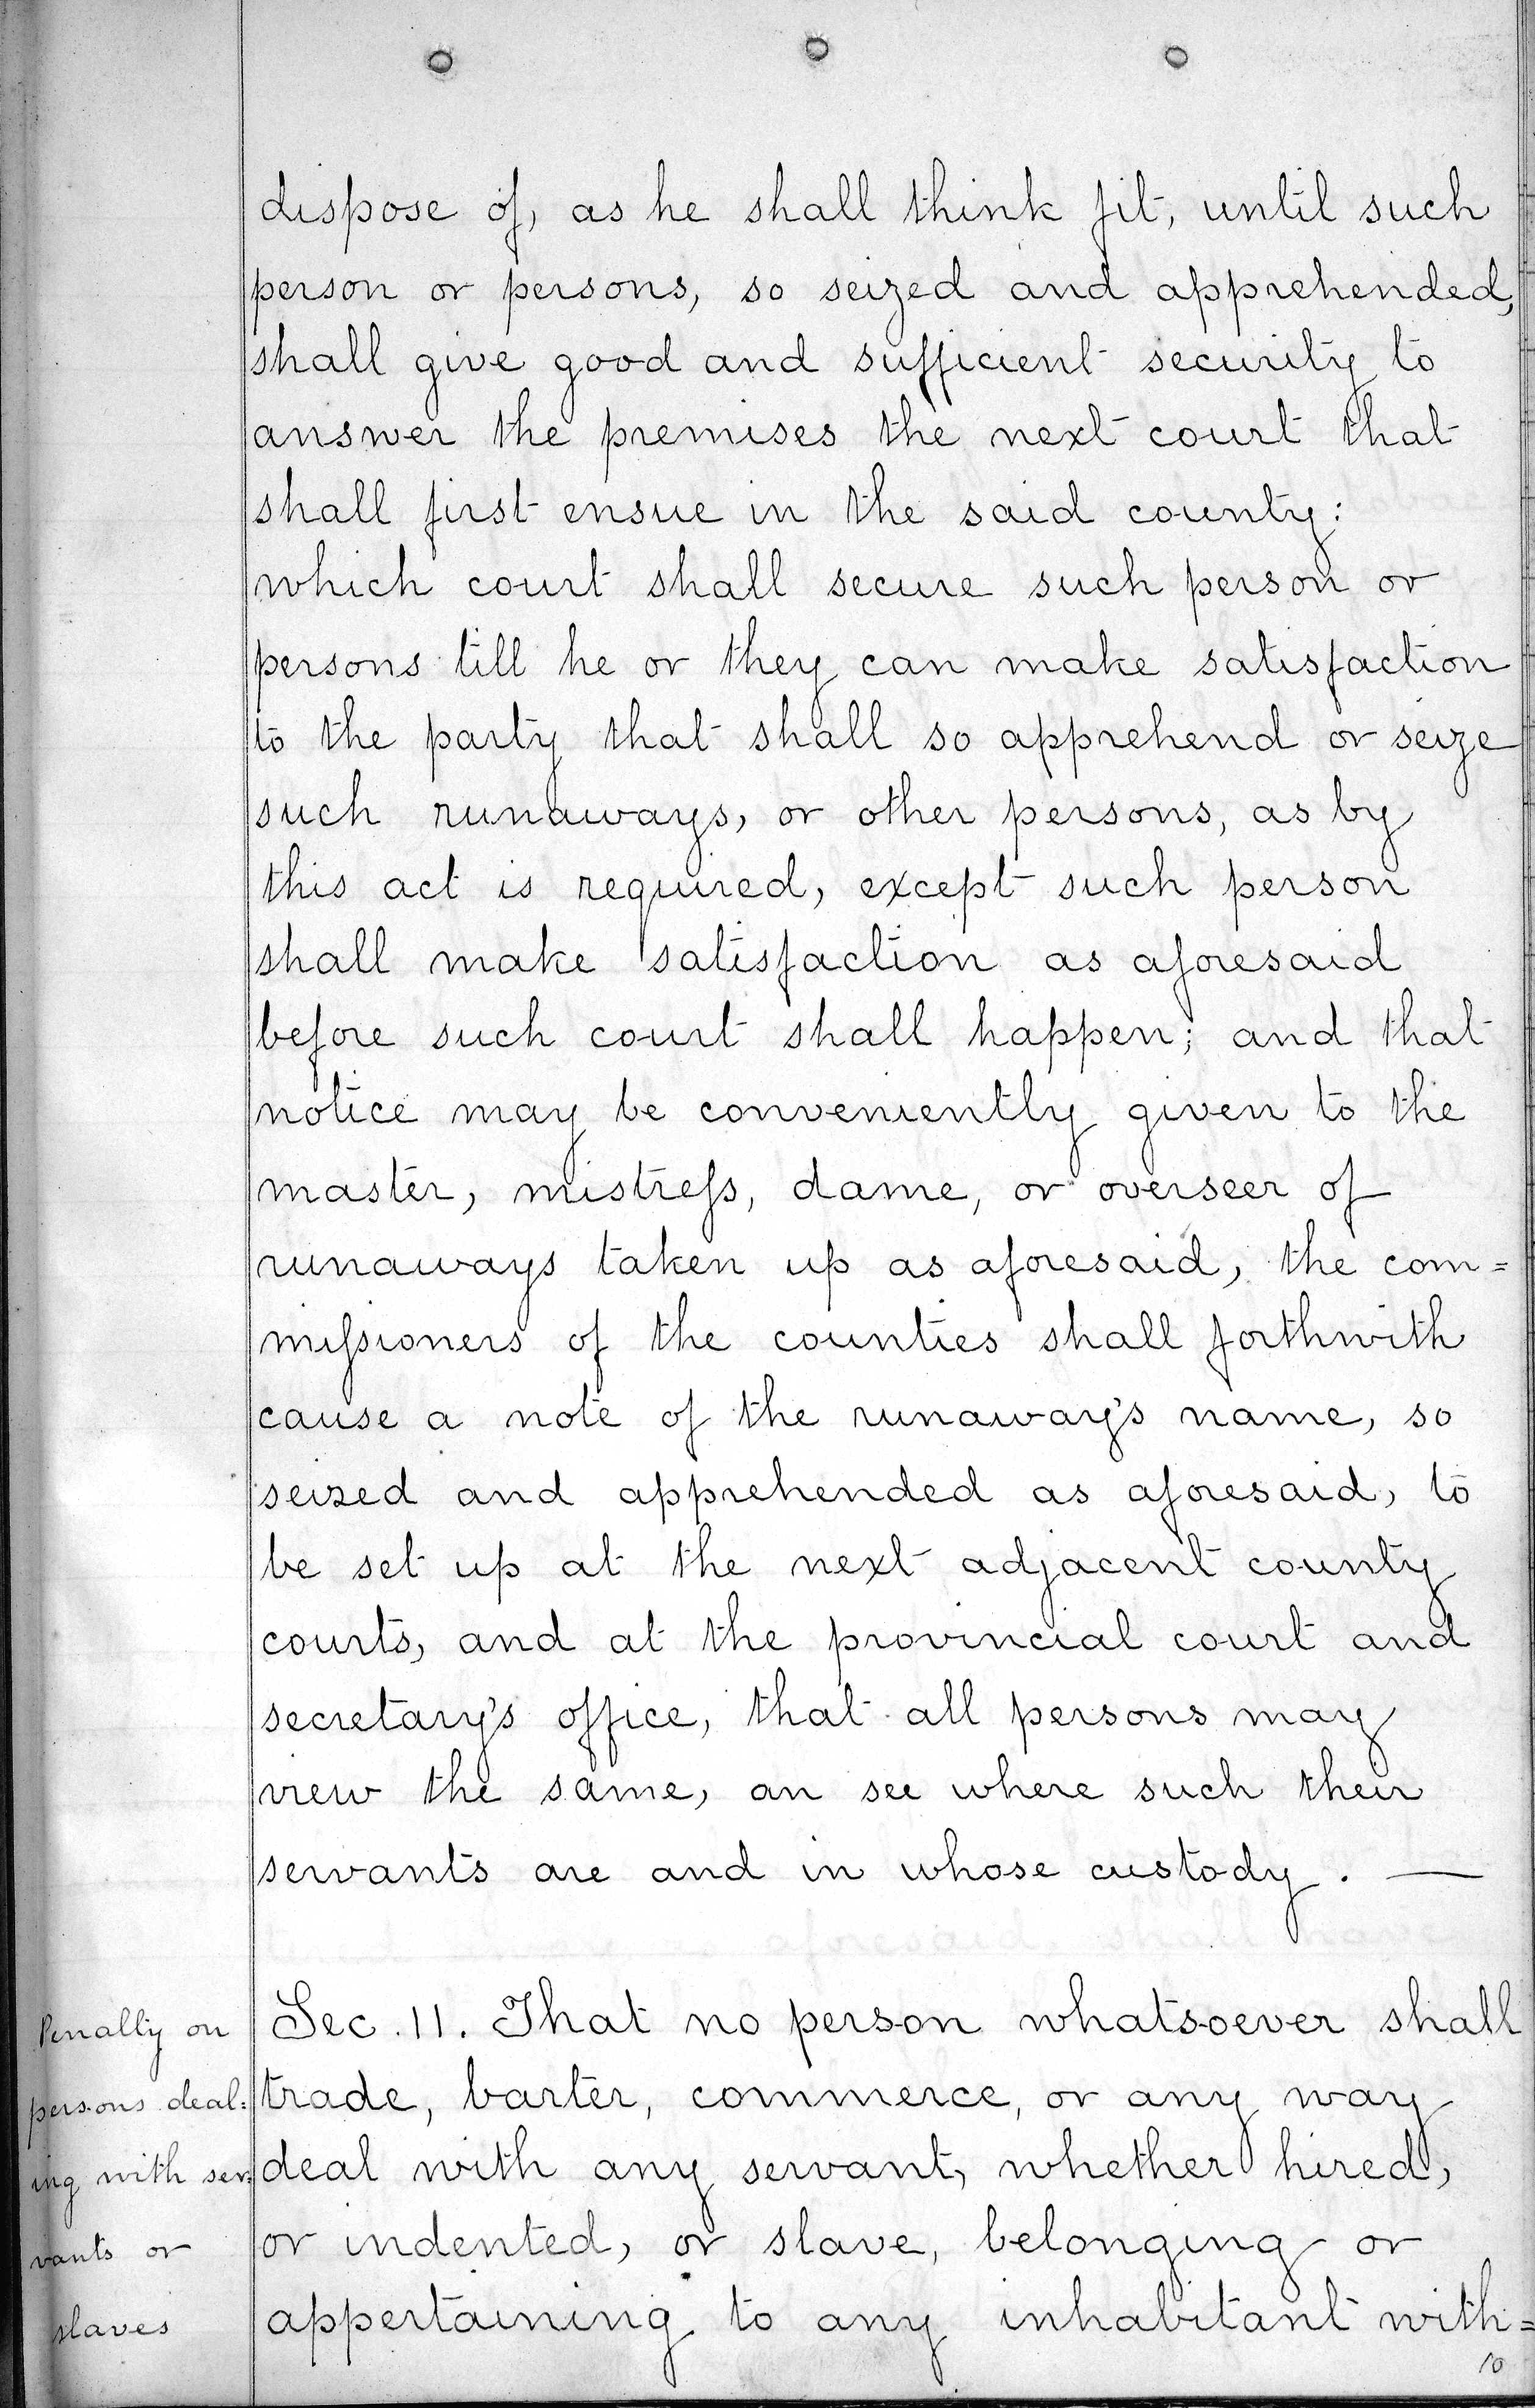 dispose of, as he shall think fit, until such
person or persons, so seized and apprehended,
shall give good and sufficient security to
answer the premises the next court that
shall first ensue in the said county:
which court shall secure such person or
persons till he or they can make satisfaction
to the party that shall so apprehend or seize
such runaways, or other persons, as by
this act is required, except such person
shall make satisfaction as aforesaid
before such court shall happen; and that
notice may be conveniently given to the
master, mistreſs, dame, or overseer of
runaways taken up as aforesaid, the com=
miſsioners of the counties shall forthwith
cause a note of the runaway's name, so
seized and apprehended as aforesaid, to
be set up at the next adjacent county
courts, and at the provincial court and
secretary's office, that all persons may
view the same, an see where such their
servants are and in whose custody. —
Penalty on
persons deal=
ing with ser=
vants or
slaves
Sec. 11. That no person whatsoever shall
trade, barter, commerce, or any way
deal with any servant, whether hired,
or indented, or slave, belonging or
appertaining to any inhabitant with=
10